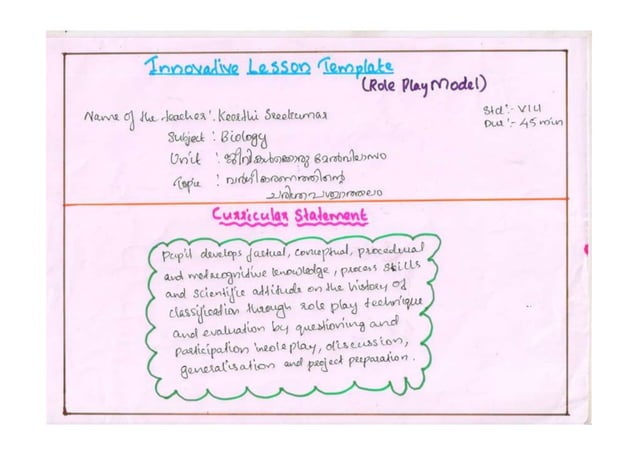 Innovative Lesson Template
(Role Play Model)
Name of the teacher : Keerthi Sreekumar
Std :- VIII
Subject : Biology
Dur :- 45 min
Unit : ജീവികൾക്കൊരു മേൽവിലാസം
Topic : വർഗീകരണത്തിന്റെ
ചരിത്രപശ്ചാത്തലം
Curricular Statement
Pupil develops factual, conceptual, procedural
and metacognitive knowledge, process skills
and scientific attitude on the history of
classification through role play technique
and evaluation by questioning and
participation in role play, discussion,
generalisation and project preparation.